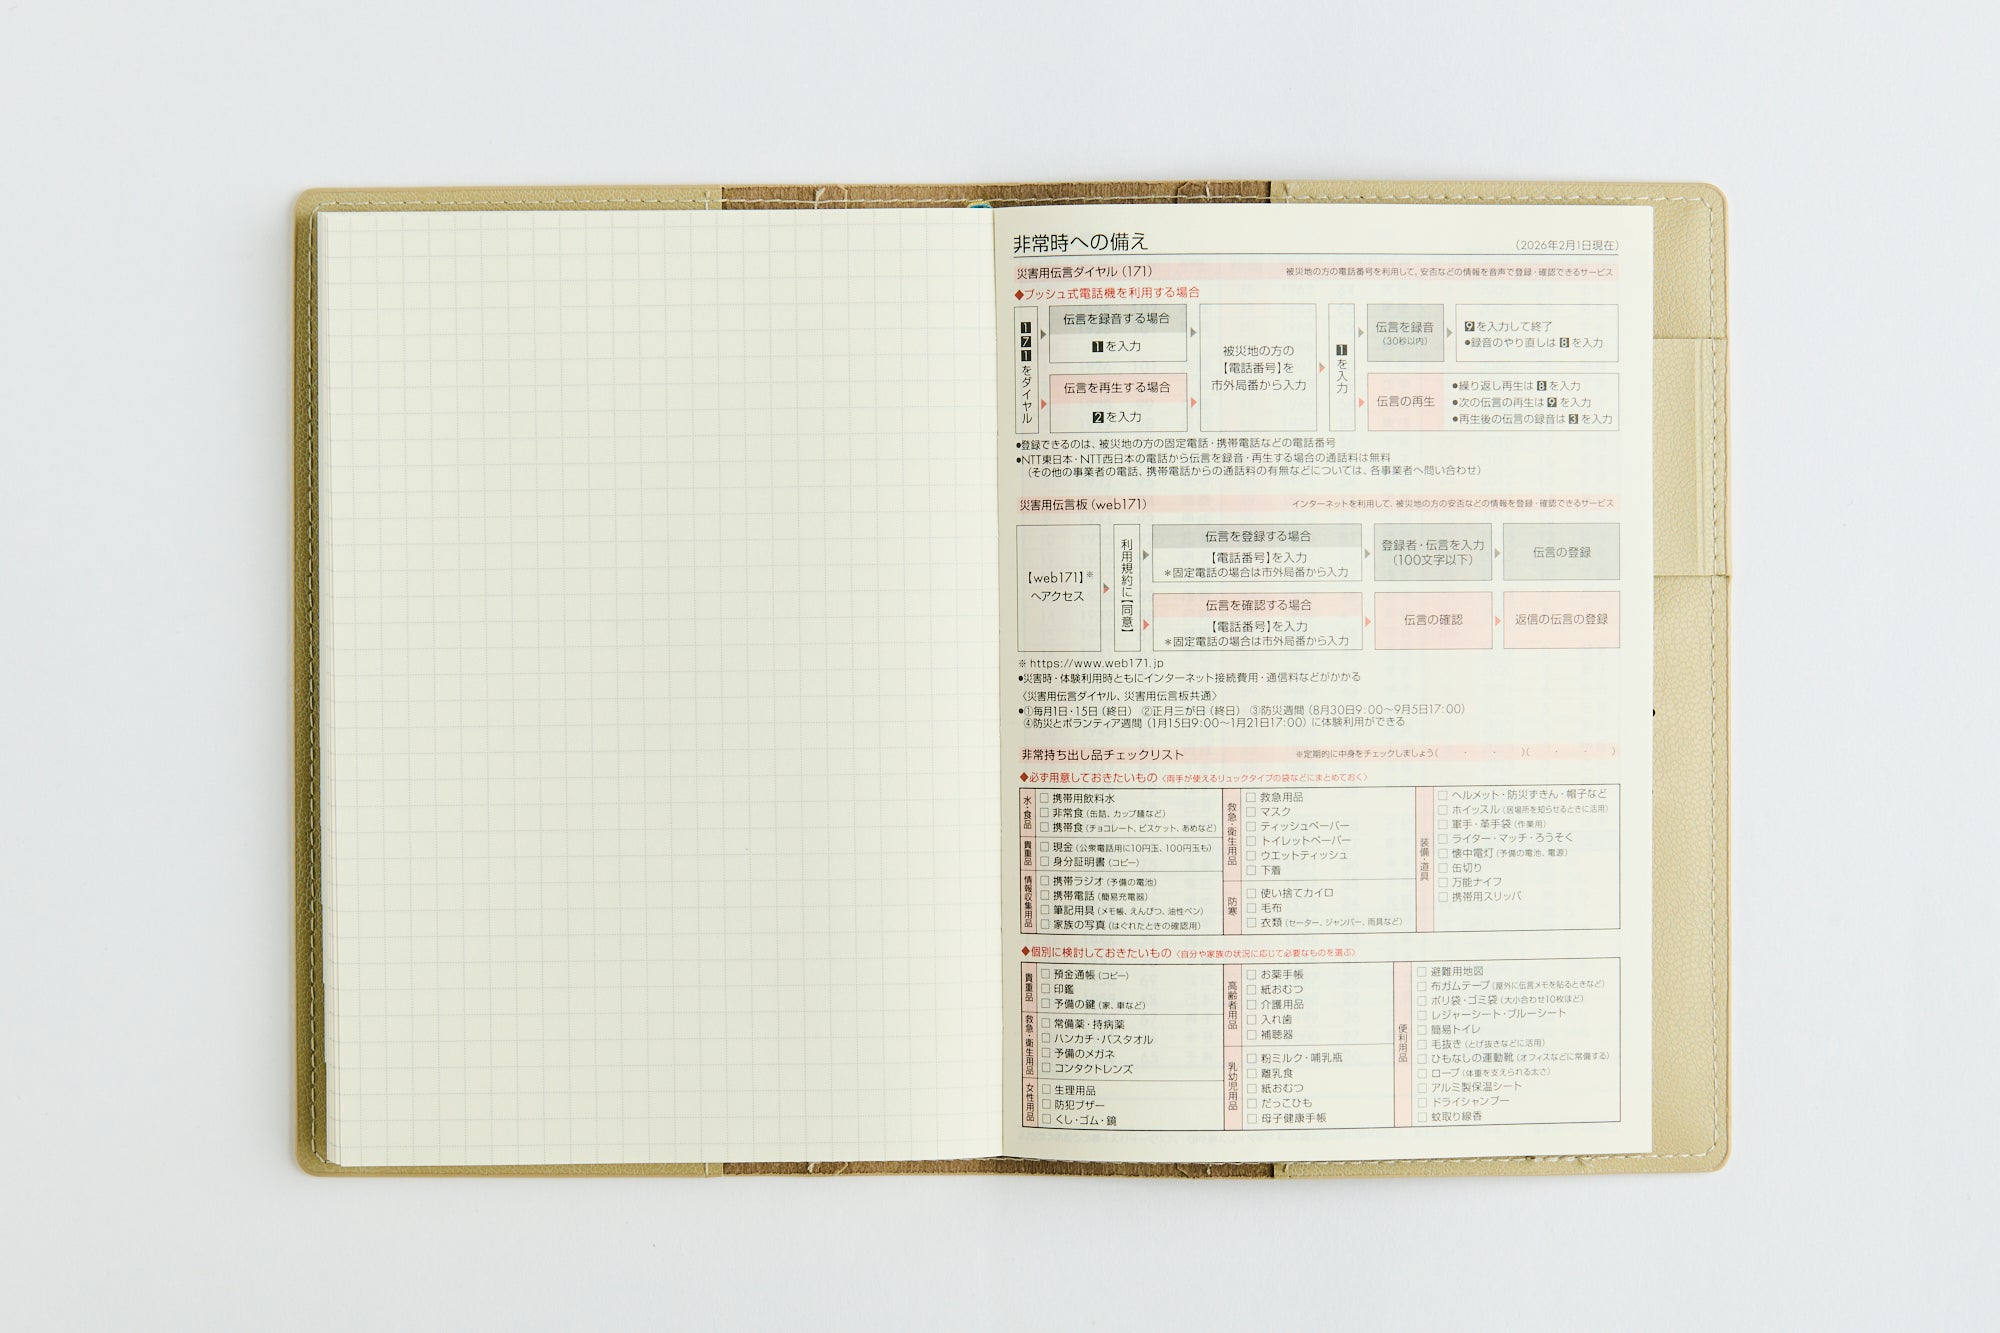 非常時への備え
(2026年2月1日現在)
災害用伝言ダイヤル(171)
被災地の方の電話番号を利用して、安否などの情報を音声で登録・確認できるサービス
◆プッシュ式電話機を利用する場合
171をダイヤル
伝言を録音する場合
1を入力
伝言を再生する場合
2を入力
被災地の方の
【電話番号】を
市外局番から入力
1を入力
伝言を録音
(30秒以内)
9を入力して終了
●録音のやり直しは8を入力
伝言の再生
●繰り返し再生は8を入力
●次の伝言の再生は9を入力
●再生後の伝言の録音は3を入力
●登録できるのは、被災地の方の固定電話・携帯電話などの電話番号
●NTT東日本・NTT西日本の電話から伝言を録音・再生する場合の通話料は無料
(その他の事業者の電話、携帯電話からの通話料の有無などについては、各事業者へ問い合わせ)
災害用伝言板(web171)
インターネットを利用して、被災地の方の安否などの情報を登録・確認できるサービス
【web171】※
へアクセス
利用規約に【同意】
伝言を登録する場合
【電話番号】を入力
＊固定電話の場合は市外局番から入力
登録者・伝言を入力
(100文字以下)
伝言の登録
伝言を確認する場合
【電話番号】を入力
＊固定電話の場合は市外局番から入力
伝言の確認
返信の伝言の登録
※ https://www.web171.jp
●災害時・体験利用時ともにインターネット接続費用・通信料などがかかる
〈災害用伝言ダイヤル、災害用伝言板共通〉
●①毎月1日・15日(終日) ②正月三が日(終日) ③防災週間(8月30日9:00〜9月5日17:00)
④防災とボランティア週間(1月15日9:00〜1月21日17:00)に体験利用ができる
非常持ち出し品チェックリスト
※定期的に中身をチェックしましょう( ・ ・ )( ・ ・ )
◆必ず用意しておきたいもの〈両手が使えるリュックタイプの袋などにまとめておく〉
水・食品
□ 携帯用飲料水
□ 非常食(缶詰、カップ麺など)
□ 携帯食(チョコレート、ビスケット、あめなど)
貴重品
□ 現金(公衆電話用に10円玉、100円玉も)
□ 身分証明書(コピー)
情報収集用品
□ 携帯ラジオ(予備の電池)
□ 携帯電話(簡易充電器)
□ 筆記用具(メモ帳、えんぴつ、油性ペン)
□ 家族の写真(はぐれたときの確認用)
救急・衛生用品
□ 救急用品
□ マスク
□ ティッシュペーパー
□ トイレットペーパー
□ ウエットティッシュ
□ 下着
防寒
□ 使い捨てカイロ
□ 毛布
□ 衣類(セーター、ジャンパー、雨具など)
装備・道具
□ ヘルメット・防災ずきん・帽子など
□ ホイッスル(居場所を知らせるときに活用)
□ 軍手・革手袋(作業用)
□ ライター・マッチ・ろうそく
□ 懐中電灯(予備の電池、電源)
□ 缶切り
□ 万能ナイフ
□ 携帯用スリッパ
◆個別に検討しておきたいもの〈自分や家族の状況に応じて必要なものを選ぶ〉
貴重品
□ 預金通帳(コピー)
□ 印鑑
□ 予備の鍵(家、車など)
救急・衛生用品
□ 常備薬・持病薬
□ ハンカチ・バスタオル
□ 予備のメガネ
□ コンタクトレンズ
女性用品
□ 生理用品
□ 防犯ブザー
□ くし・ゴム・鏡
高齢者用品
□ お薬手帳
□ 紙おむつ
□ 介護用品
□ 入れ歯
□ 補聴器
乳幼児用品
□ 粉ミルク・哺乳瓶
□ 離乳食
□ 紙おむつ
□ だっこひも
□ 母子健康手帳
便利用品
□ 避難用地図
□ 布ガムテープ(屋外に伝言メモを貼るときなど)
□ ポリ袋・ゴミ袋(大小合わせ10枚ほど)
□ レジャーシート・ブルーシート
□ 簡易トイレ
□ 毛抜き(とげ抜きなどに活用)
□ ひもなしの運動靴(オフィスなどに常備する)
□ ロープ(体重を支えられる太さ)
□ アルミ製保温シート
□ ドライシャンプー
□ 蚊取り線香